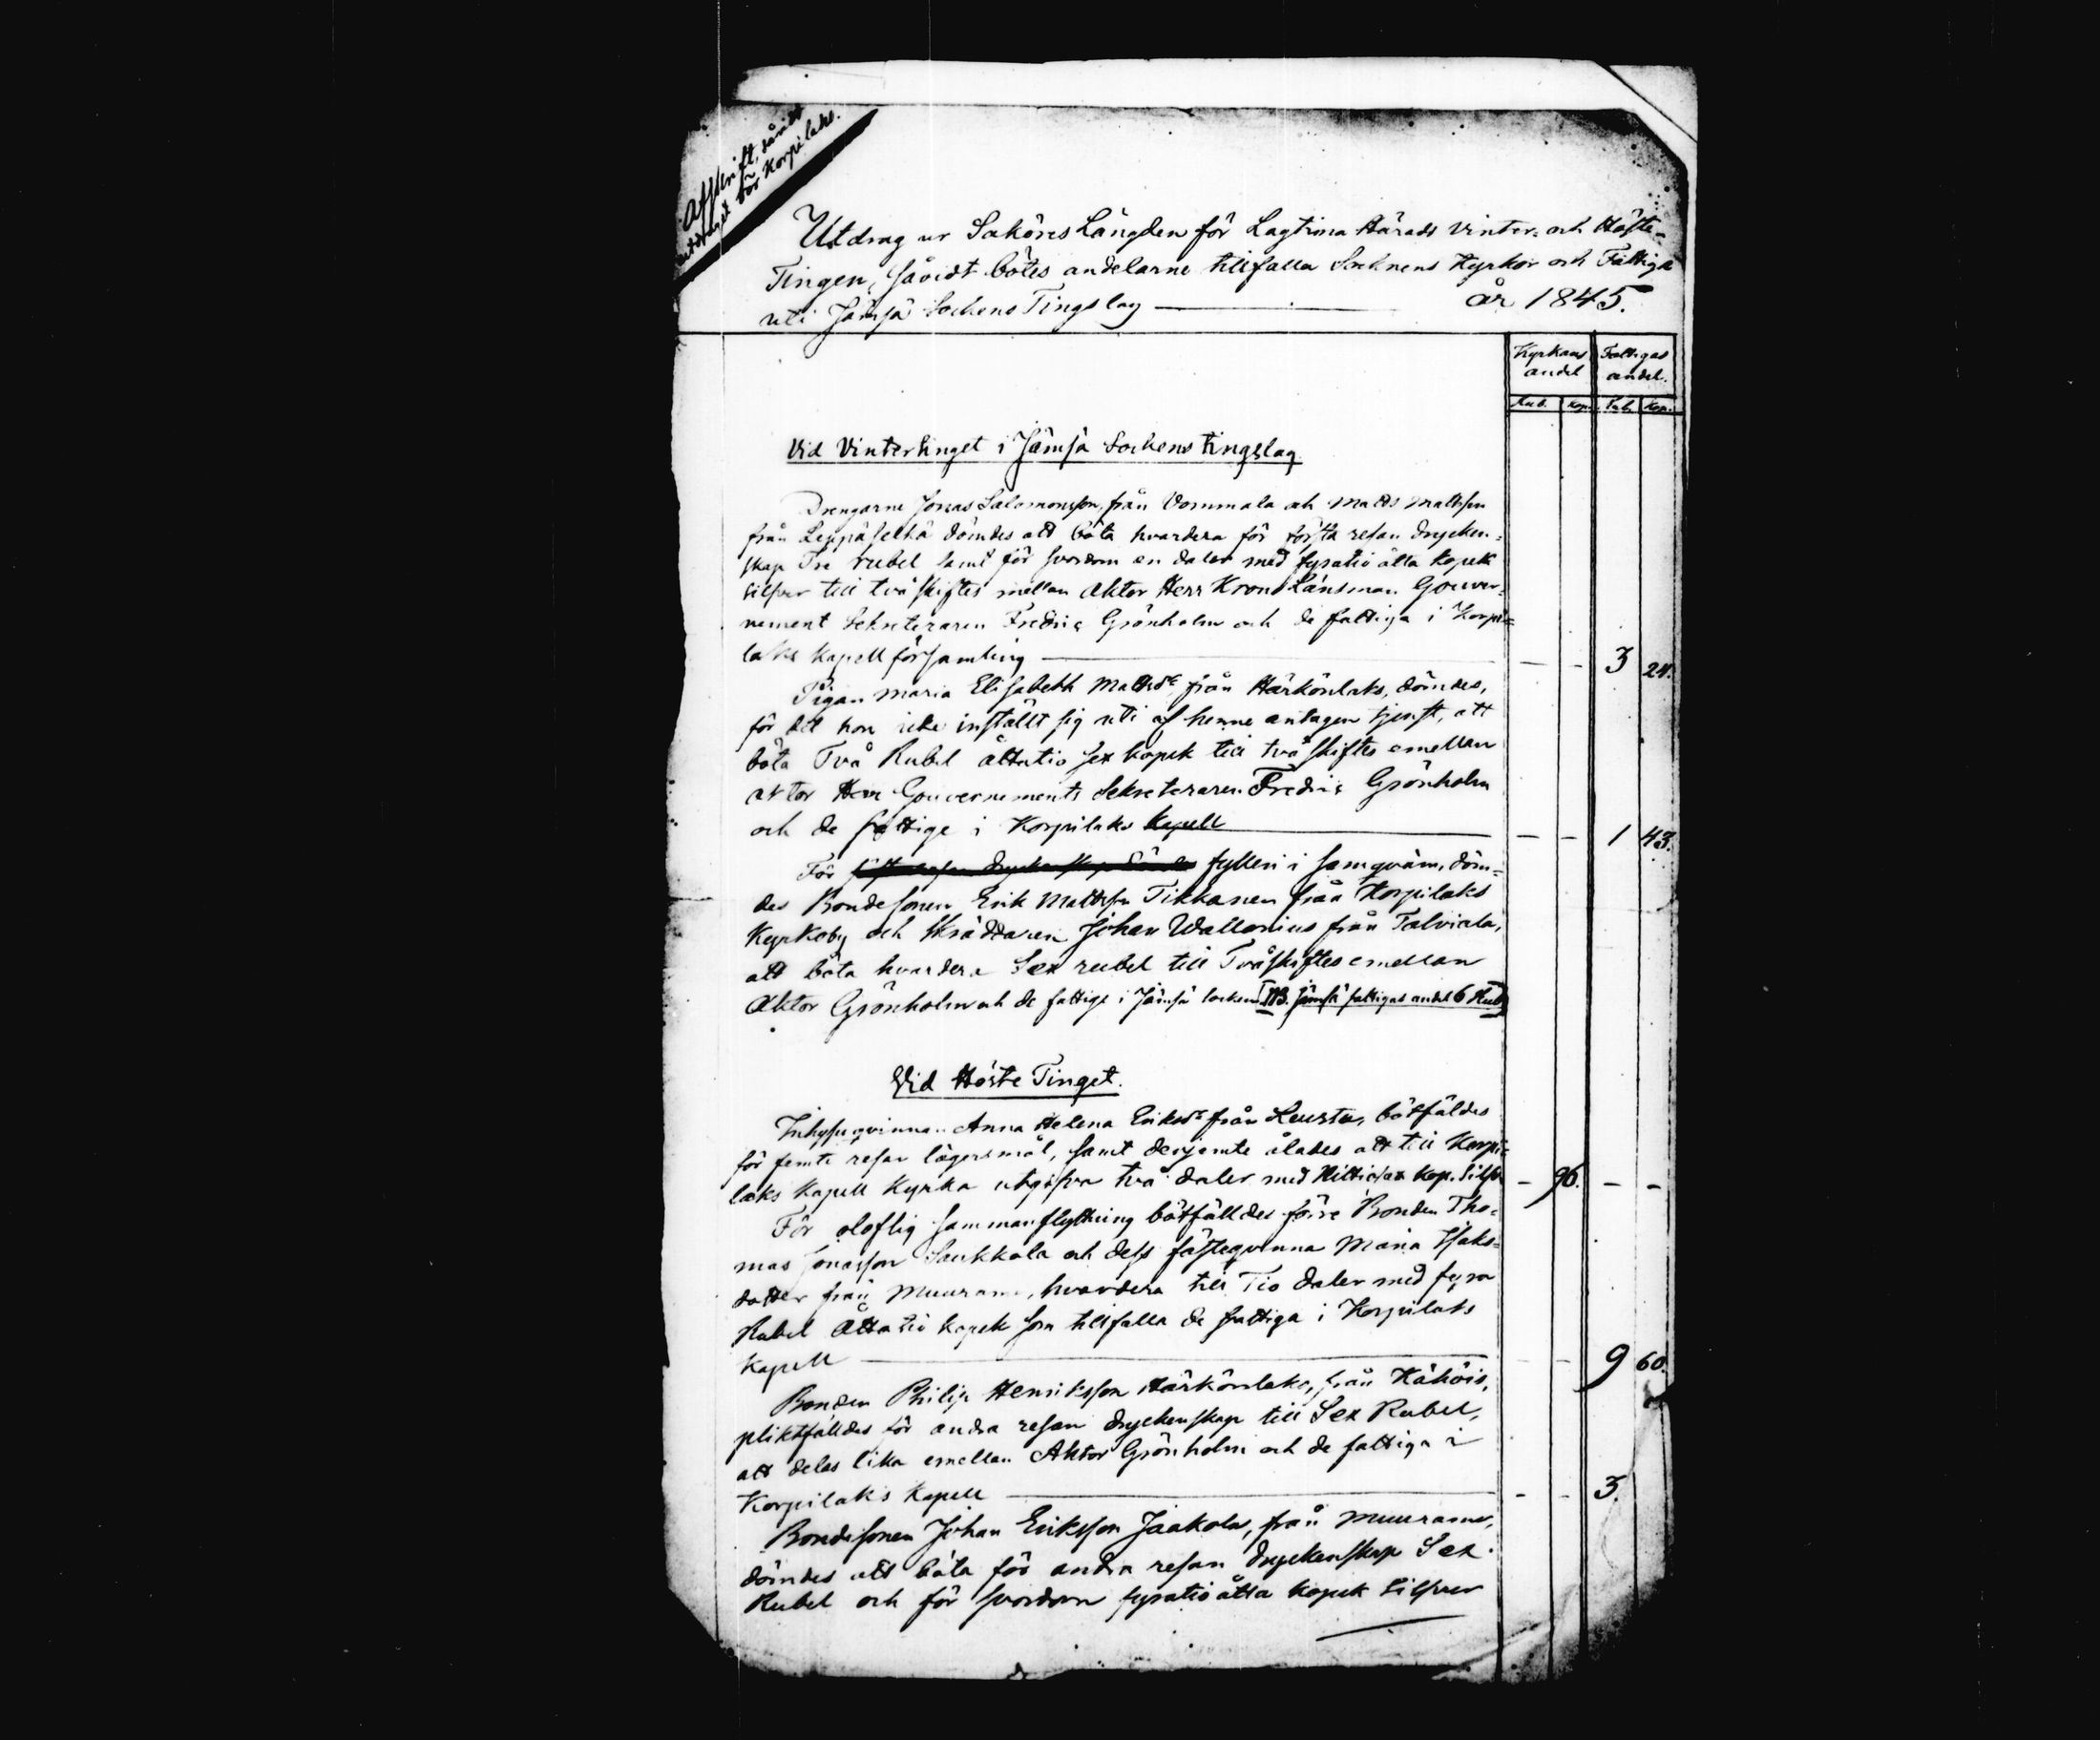 Afskrift, såvidt
utdraget rör Korpilaks.
Utdrag ur Saköres Längden för Lagtima Härads Vinter- och Höste-
Tingen, såvidt bötes andelarne tillfalla Socknens Kyrkor och Fattiga
uti Jämsä Sockens Tingslag — år 1845.
Kyrkans Fattigas
andel andel.
Rub. Kop. Rub. Kop.
Vid Vintertinget i Jämsä Sockens tingslag
Drengarne Jonas Salomonsson, från Vommala och Matts Mattsson
från Leppäselkä dömdes att böta hvardera för första resan drycken-
skap Tre rubel samt för svordom en daler med fyratio åtta kopek
silfver till tvåskiftes mellan Aktor Herr Krono Länsman Gouver-
nement Sekreteraren Fredric Grönholm och de fattiga i Korpi-
laks kapellförsamling — — — 3 24.
Pigan Maria Elisabeth Mattsdr från Härkönlaks, dömdes,
för det hon icke inställt sig uti af henne antagen tjenst, att
böta Två Rubel åttatio sex kopek till tvåskiftes emellan
aktor Herr Gouvernements Sekreteraren Fredric Grönholm
och de fattige i Korpilaks kapell — — 1 43.
För första resan dryckenskap dömdes fylleri i samqväm, döm-
des Bondesonen Erik Mattsson Tikkanen från Korpilaks
Kyrkoby och Skräddaren Johan Wallenius från Talviala,
att böta hvardera Sex rubel till Tvåskiftes emellan
Aktor Grönholm och de fattige i Jämsä socken [NB. Jämsä fattigas andel 6 Rub]
Vid Höste Tinget.
Inhysesqvinnan Anna Helena Eriksdr från Leustu, bötfäldes
för femte resan lägersmål, samt derjemte ålades att till Korpi-
laks Kapell Kyrka utgifva två daler med Nittiosex kop. Silfv — 96. — —
För oloflig sammanflyttning bötfälldes förre Bonden Tho-
mas Jonasson Saukkola och dess fästeqvinna Maria Isaks-
dotter från Muurame, hvardera till Tio daler med fyra
Rubel Åttatio kopek som tillfalla de fattiga i Korpilaks
Kapell — — — 9 60.
Bonden Philip Henriksson Härkönlaks, från Kähöis,
pliktfälldes för andra resan dryckenskap till Sex Rubel,
att delas lika emellan Aktor Grönholm och de fattiga i
Korpilaks Kapell — - - 3.
Bondesonen Johan Eriksson Jaakola, från Muurame,
dömdes att böta för andra resan dryckenskap Sex
Rubel och för svordom fyratioåtta kopek Silfver